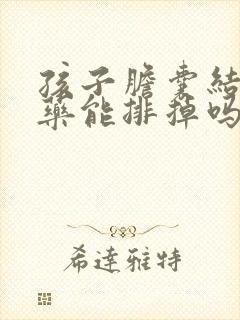 孩子膽囊結
藥能排掉嗎
希達雅特